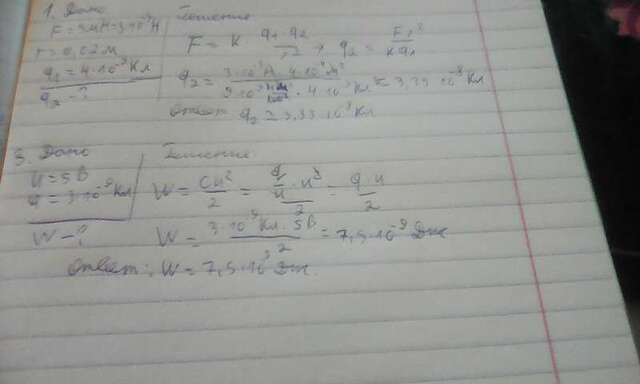 1. Дано
Решение
F = 3мН = 3·10⁻³Н
r = 0,02м
q₁ = 4·10⁻⁹Кл
q₂ - ?
F = k q₁ q₂ / r² → q₂ = F r² / k q₁
q₂ = 3·10⁻³Н · 4·10⁻⁴м² / 9·10⁹ · 4·10⁻⁹Кл ≈ 3,33·10⁻⁸Кл
Ответ q₂ ≈ 3,33·10⁻⁸Кл
3. Дано
Решение
U = 5В
q = 3·10⁻⁹Кл
W - ?
W = CU² / 2 = q/U · U² / 2 = q U / 2
W = 3·10⁻⁹Кл · 5В / 2 = 7,5·10⁻⁹ Дж
Ответ: W = 7,5·10⁻⁹ Дж.